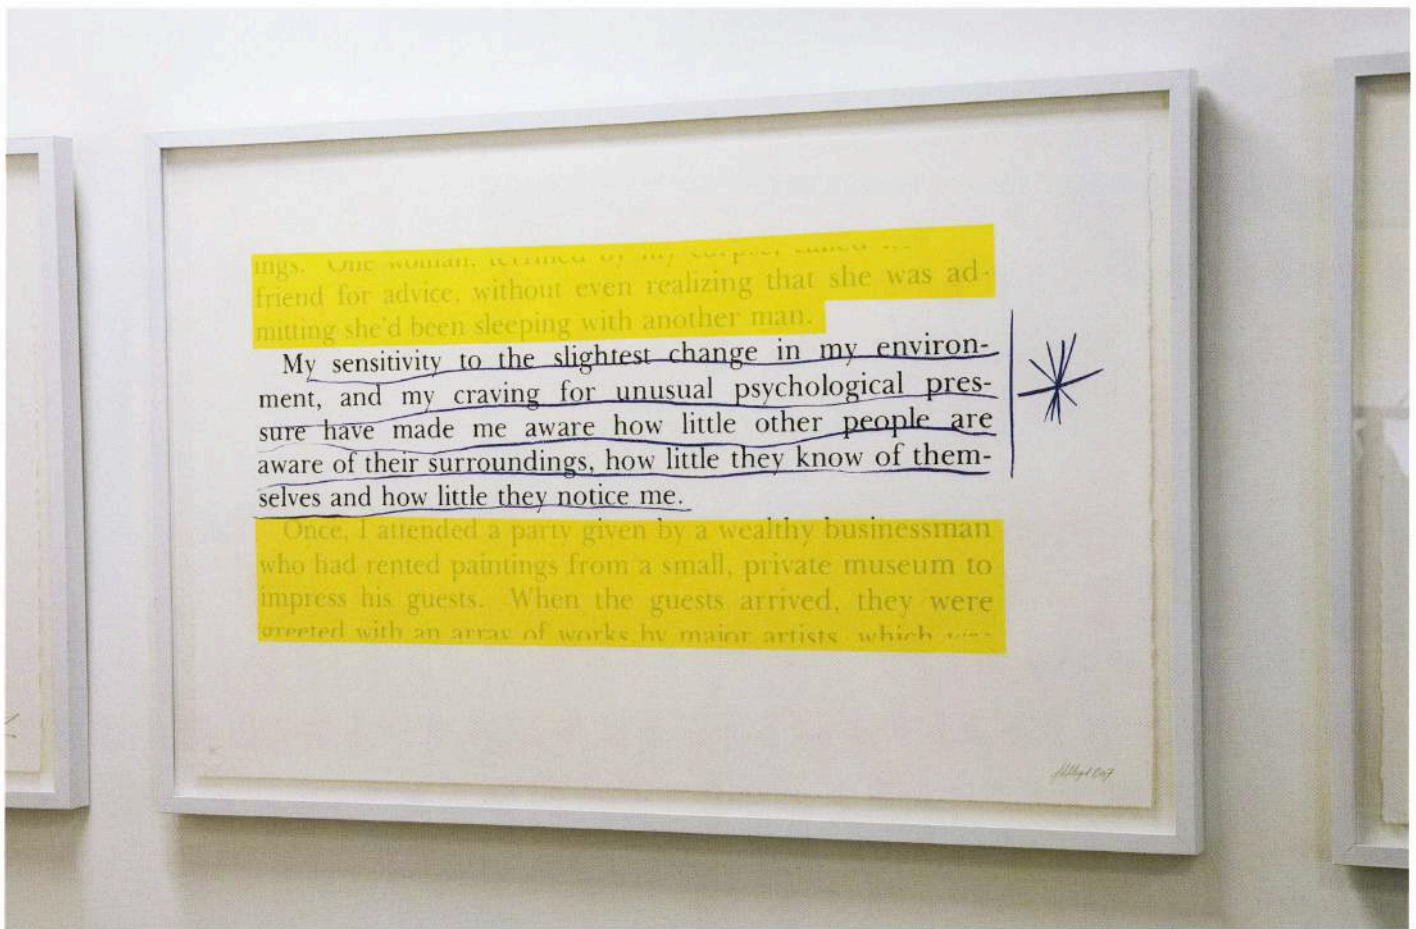 ings. One woman, terrified by my corpse, called
friend for advice, without even realizing that she was ad-
mitting she'd been sleeping with another man.
My sensitivity to the slightest change in my environ-
ment, and my craving for unusual psychological pres-
sure have made me aware how little other people are
aware of their surroundings, how little they know of them-
selves and how little they notice me.
Once, I attended a party given by a wealthy businessman
who had rented paintings from a small, private museum to
impress his guests. When the guests arrived, they were
greeted with an array of works by major artists, which